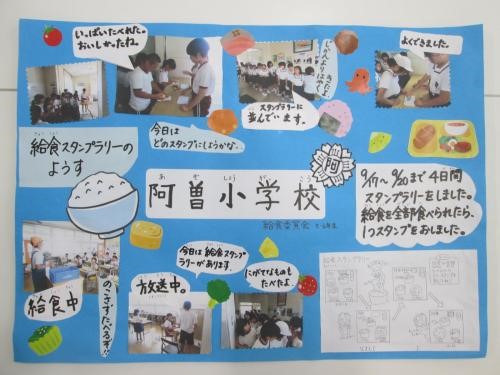 いっぱいたべれた。
おいしかったね。
じゃんけんよ
はやく
きたよ
よくできました。
スタンプラリーに
並んでいます。
給食スタンプラリーの
ようす
今日は
どのスタンプにしようかな…
阿
あ そ しょう がっ こう
阿曽小学校
給食委員会
9/17〜9/20まで4日間
スタンプラリーをしました。
給食を全部食べられたら、
1つスタンプをおしました。
今日は給食スタンプ
ラリーがあります。
にがてなものも
たべたよ。
給食スタンプラリー
きゅうしょくちゅう
給食中
のこさずたべるぞ!!
ほうそうちゅう
放送中。